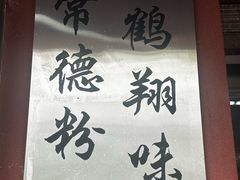 鹤翔味
常德粉